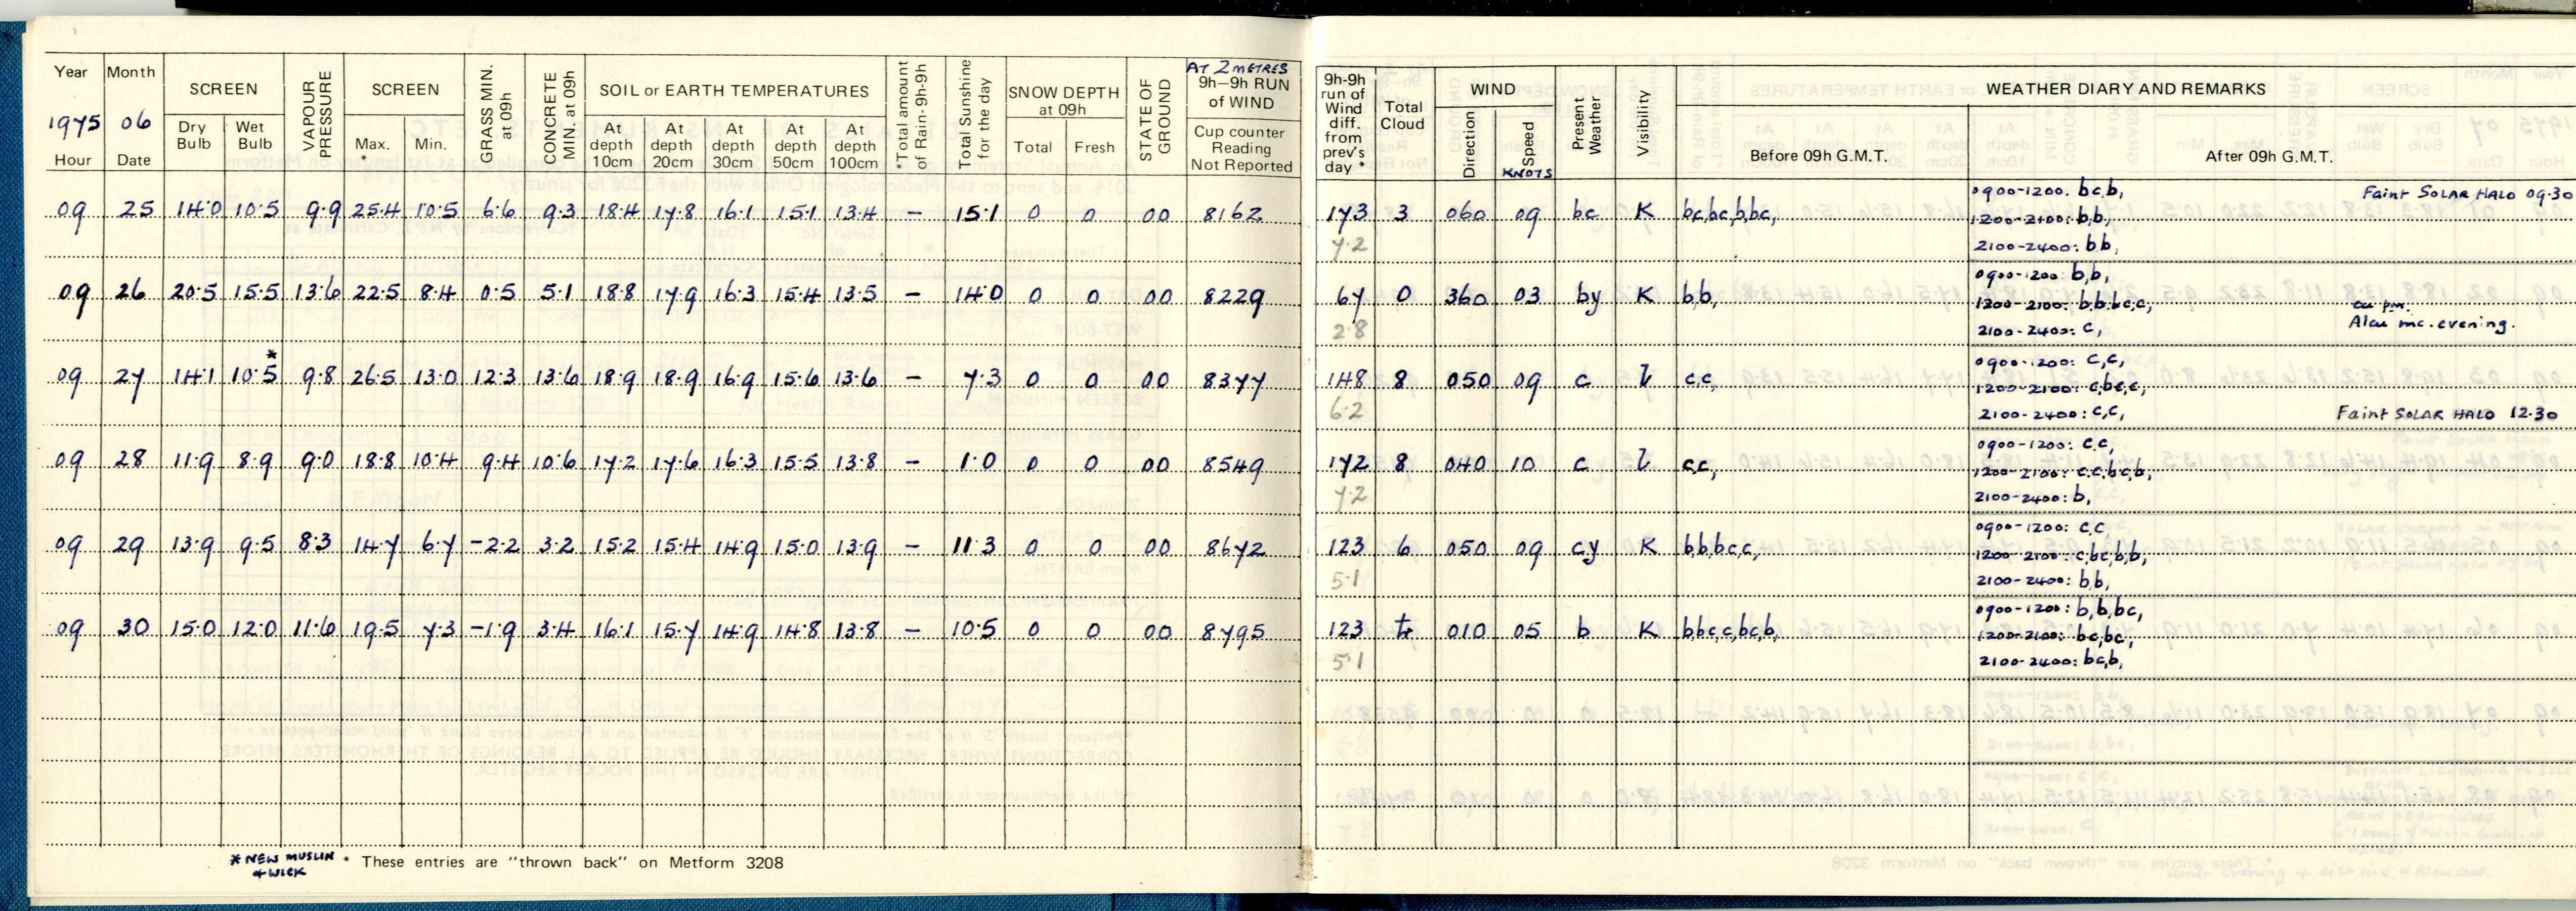 Year Month SCREEN VAPOUR PRESSURE SCREEN GRASS MIN. at 09h CONCRETE MIN. at 09h SOIL or EARTH TEMPERATURES *Total amount of Rain-9h-9h Total Sunshine for the day SNOW DEPTH at 09h STATE OF GROUND AT 2 METRES 9h-9h RUN of WIND
1975 06 Dry Bulb Wet Bulb Max. * Min. At depth 10cm At depth 20cm At depth 30cm At depth 50cm At depth 100cm Total Fresh Cup counter Reading Not Reported
Hour Date
09 25 14.0 10.5 9.9 25.4 10.5 6.6 9.3 18.4 17.8 16.1 15.1 13.4 - 15.1 0 0 00 8162
09 26 20.5 15.5 13.6 22.5 8.4 0.5 5.1 18.8 17.9 16.3 15.4 13.5 - 14.0 0 0 00 8229
09 27 14.1 10.5* 9.8 26.5 13.0 12.3 13.6 18.9 18.9 16.9 15.6 13.6 - 7.3 0 0 00 8377
09 28 11.9 8.9 9.0 18.8 10.4 9.4 10.6 17.2 17.6 16.3 15.5 13.8 - 1.0 0 0 00 8549
09 29 13.9 9.5 8.3 14.7 6.7 -2.2 3.2 15.2 15.4 14.9 15.0 13.9 - 11.3 0 0 00 8672
09 30 15.0 12.0 11.6 19.5 7.3 -1.9 3.4 16.1 15.7 14.9 14.8 13.8 - 10.5 0 0 00 8795
* NEW MUSLIN + WICK
* These entries are "thrown back" on Metform 3208
9h-9h run of Wind diff. from prev's day * Total Cloud WIND Present Weather Visibility WEATHER DIARY AND REMARKS
Direction Speed KNOTS Before 09h G.M.T. After 09h G.M.T.
0900-1200: bc,b, Faint SOLAR HALO 09.30
173 3 060 09 bc K bc,bc,b,bc, 1200-2100: b,b,
7.2 2100-2400: b,b,
0900-1200: b,b,
67 0 360 03 by K b,b, 1200-2100: b,b,bc,c, cu pm.
2.8 2100-2400: c, Alcu mc. evening.
0900-1200: c,c,
148 8 050 09 c l c,c, 1200-2100: c,bc,c,
6.2 2100-2400: c,c, Faint SOLAR HALO 12.30
0900-1200: c,c,
172 8 040 10 c l c,c, 1200-2100: c,c,bc,b,
7.2 2100-2400: b,
0900-1200: c,c
123 6 050 09 cy K b,b,bc,c, 1200-2100: c,bc,b,b,
5.1 2100-2400: b,b,
0900-1200: b,b,bc,
123 tr 010 05 b K b,bc,c,bc,b, 1200-2100: bc,bc,
5.1 2100-2400: bc,b,